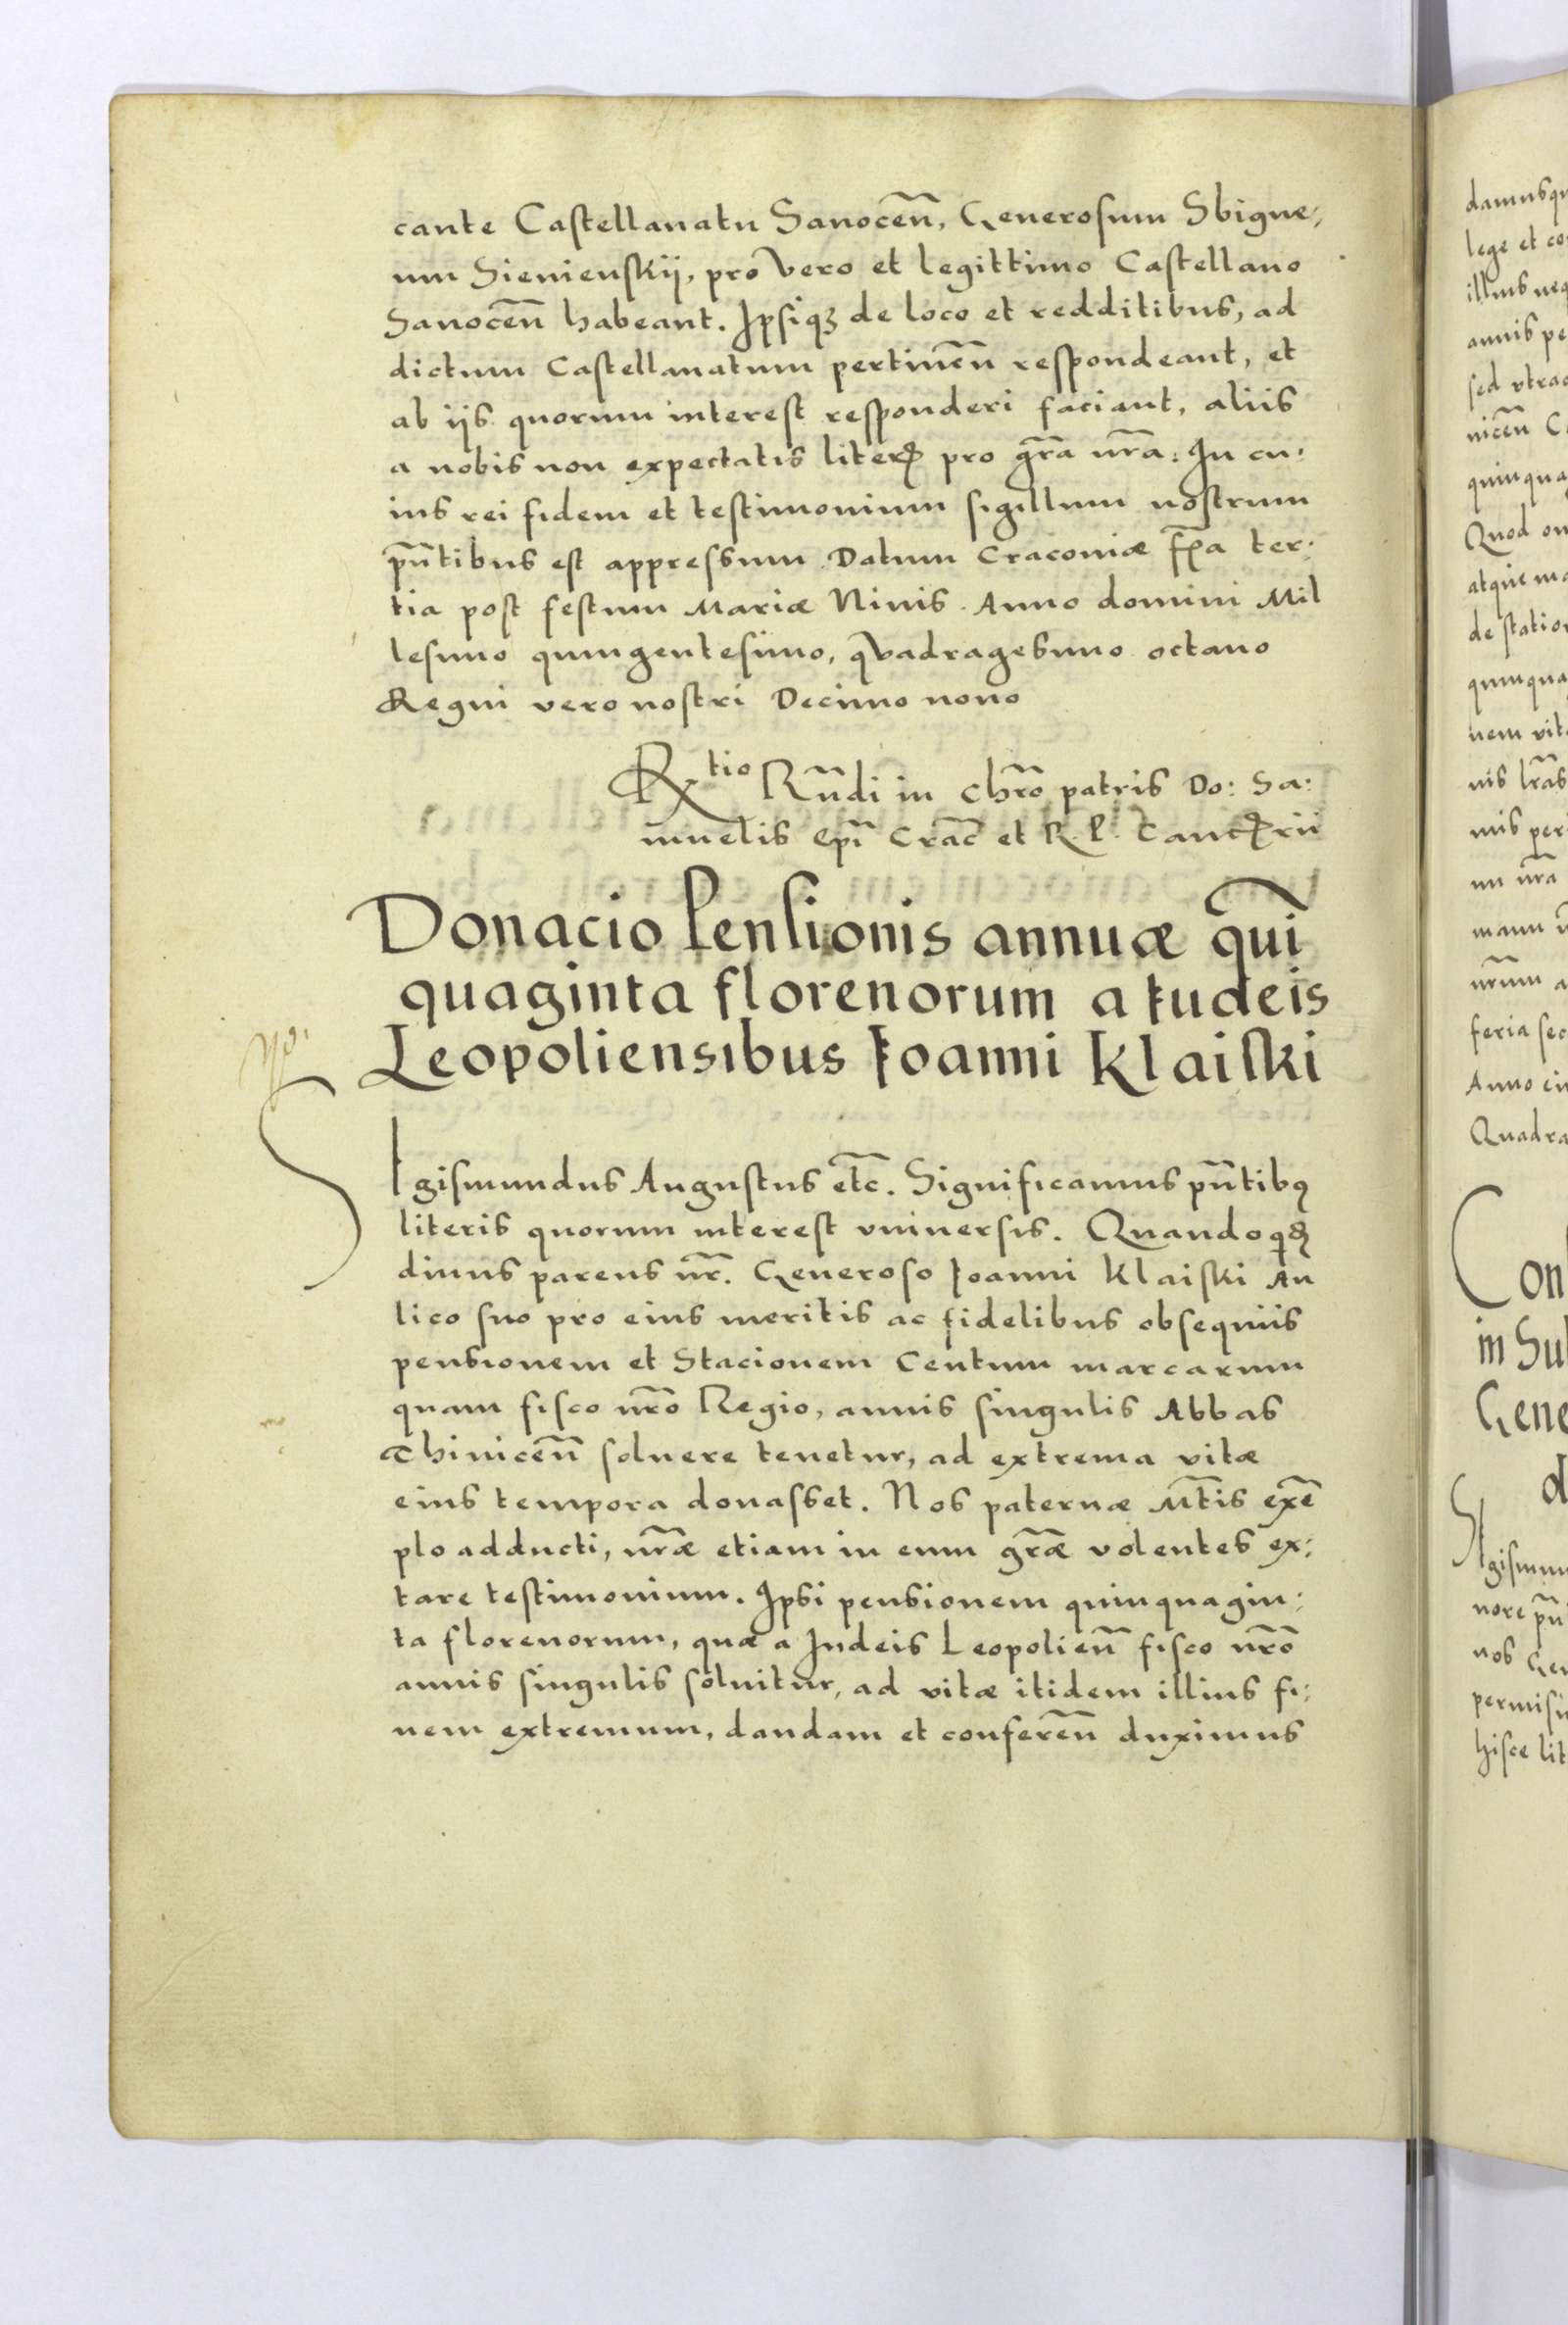 cante Castellanatu Sanocen̄, Generosum Sbigne,
um Sienienskij, pro vero et legittimo Castellano
Sanocen̄ habeant. Ipsiqꝫ de loco et redditibus, ad
dictum Castellanatum pertinen̄ respondeant, et
ab ijs quorum interest responderi faciant, aliis
a nobis non expectatis literꝭ pro gr̄a nr̄a: In cu:
ius rei fidem et testimonium sigillum nostrum
pn̄tibus est appressum Datum Cracoviæ fr̄ia ter:
tia post festum Mariæ Nivis. Anno domini Mil
lesimo quingentesimo, qvadragesimo octavo
Regni vero nostri Decimo nono
Rtio Rn̄di in Chr̄o patris Do: Sa:
muelis Ep̄i Crac̄ et R. P. Cancꝭrii
Donacio Pensionis annuæ qui̅
quaginta florenorum a Iudeis
Leopoliensibus Ioanni Klaiski
SIgismundus Augustus etc̄. Significamus pn̄tibꝰ
literis quorum interest vniversis. Quandoqdꝫ
divus parens nr̄. Generoso Ioanni Klaiski Au
lico suo pro eius meritis ac fidelibus obsequiis
pensionem et Stacionem Centum marcarum
quam fisco nr̄o Regio, annis singulis Abbas
Thinicen̄ solvere tenetur, ad extrema vitæ
eius tempora donasset. Nos paternæ Mt̄is exe̅
plo adducti, nr̄æ etiam in eum gr̄æ volentes ex:
tare testimonium. Ipsi pensionem quinquagin:
ta florenorum, quæ a Iudeis Leopolien̄ fisco nr̄o
annis singulis solvitur, ad vitæ itidem illius fi:
nem extremum, dandam et conferen̄ duximus
damusqu
lege et co
illius neq
annis pe
sed vtra
nicen̄ C
quinqua
Quod om
atque ma
de statio
quinqua
nem vit
nis lr̄as
mis per
nu nr̄a
manu
nr̄um a
feria sec
Anno
Quadra
Con
in Su
Gene
d
SIgismu
nore pn̄
nos Gen
permisi
hisce lit